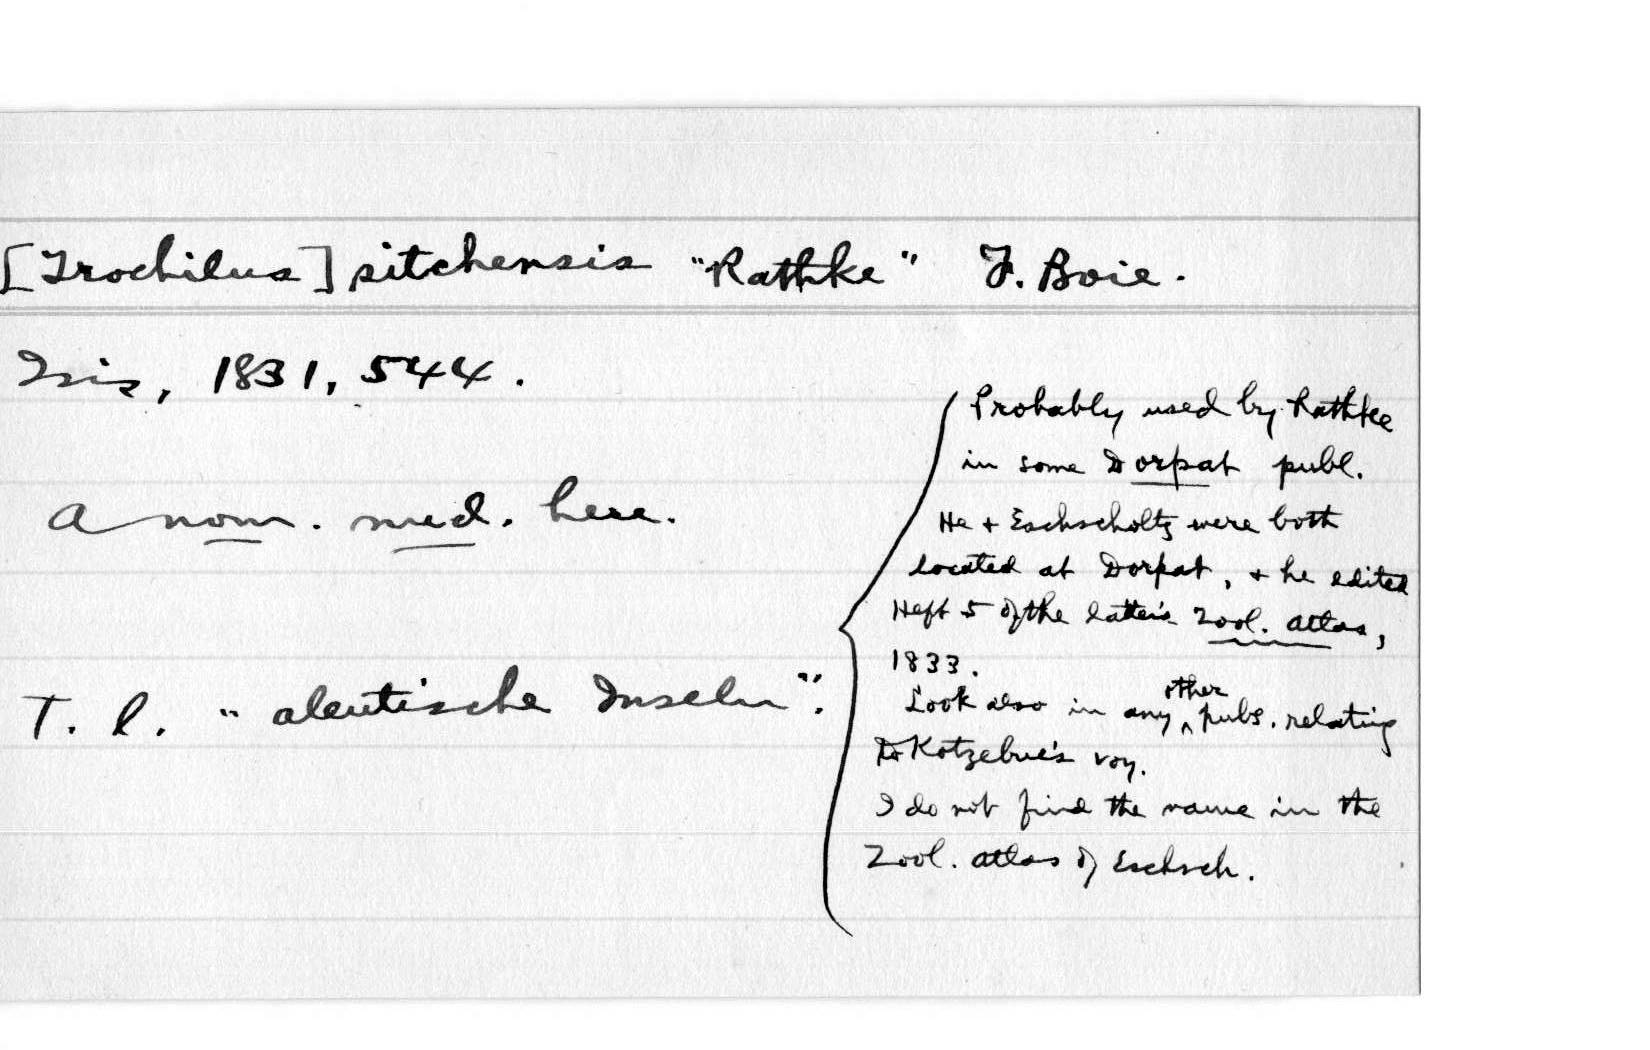 [Trochilus] sitchensis "Rathke" F. Boie.
Isis, 1831, 544.
A nom. nud. here.
T. l. "aleutische Inseln".
Probably used by Rathke
in some Dorpat publ.
He + Eschscholtz were both
located at Dorpat, + he edited
Heft 5 of the latter's Zool. Atlas,
1833.
Look also in any other pubs. relating
to Kotzebue's voy.
I do not find the name in the
Zool. Atlas of Eschsch.